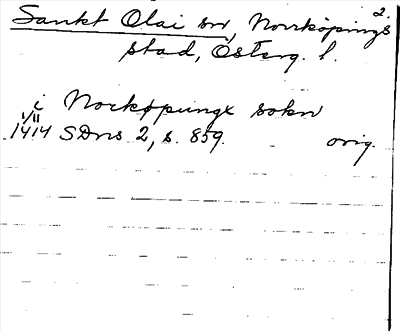 2.
Sankt Olai sn, Norrköpings
stad, Österg. l.
i Norkøpunge sokn
1/11
1414 SDns 2, s. 859. orig.